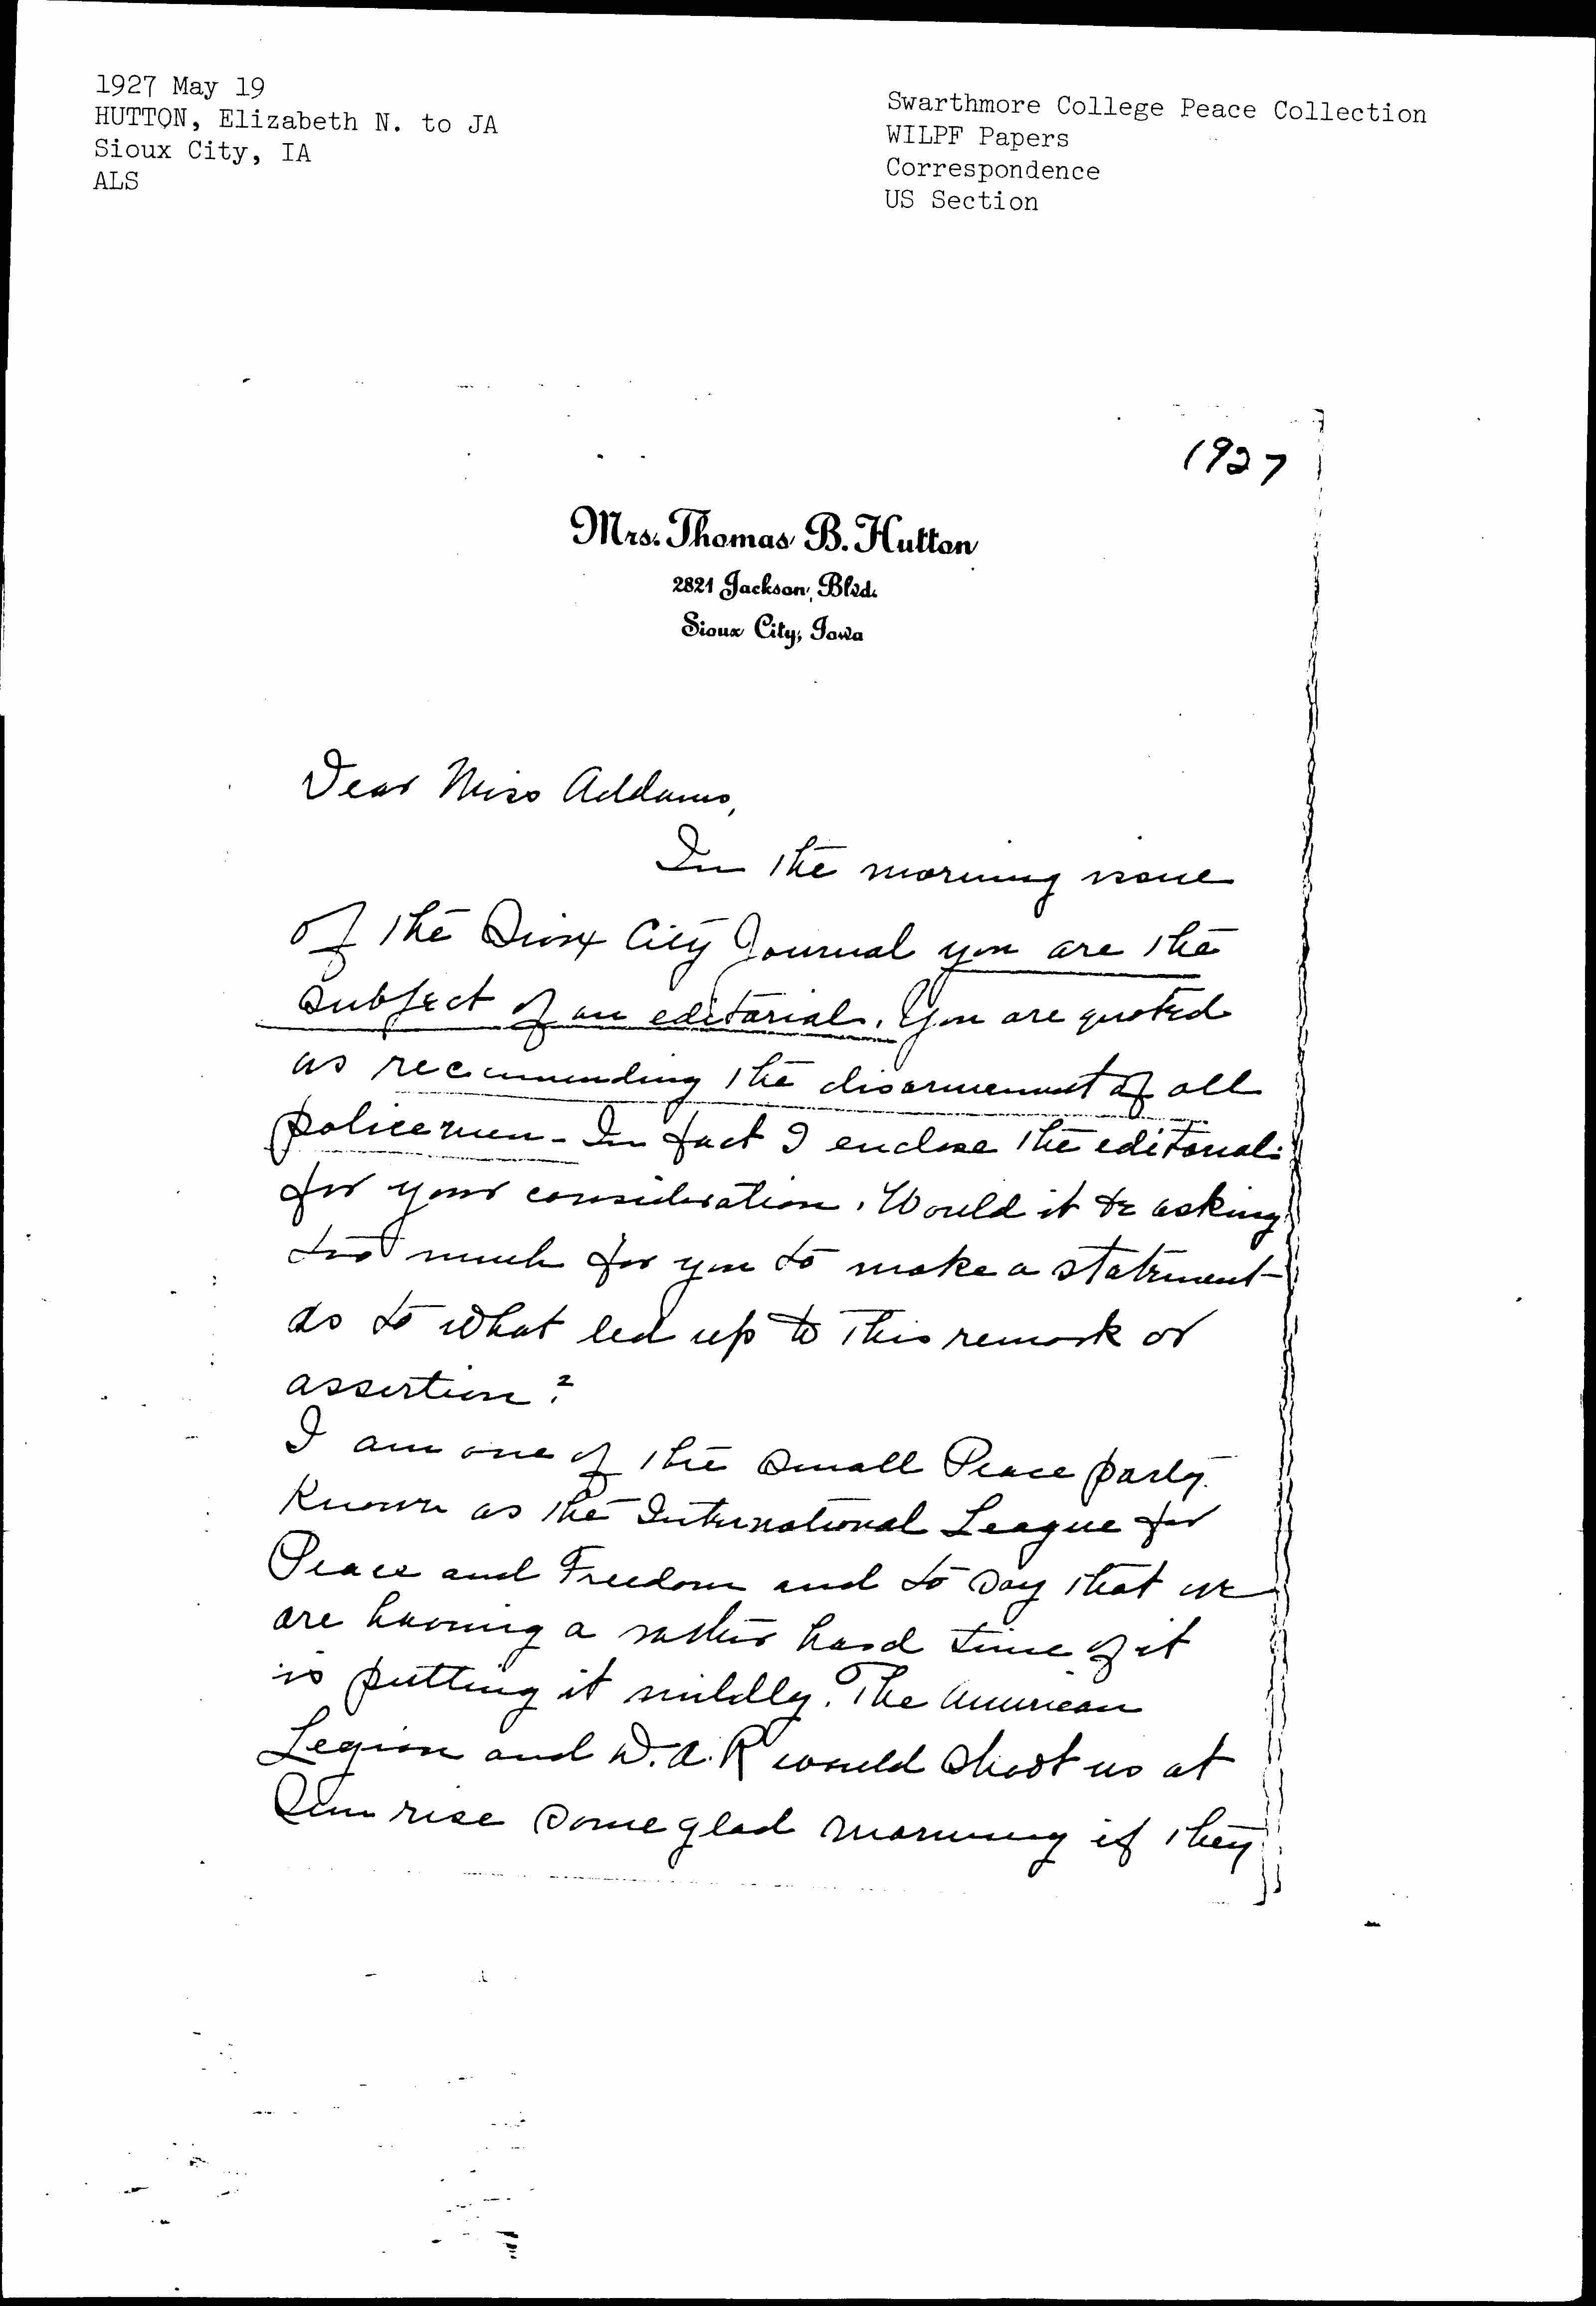 1927 May 19
HUTTON, Elizabeth N. to JA
Sioux City, IA
ALS
Swarthmore College Peace Collection
WILPF Papers
Correspondence
US Section
1927
Mrs. Thomas B. Hutton
2821 Jackson, Blvd.
Sioux City, Iowa
Dear Miss Addams,
In the morning issue
of the Sioux City Journal you are the
subject of an editorial. You are quoted
as recommending the disarmement of all
policemen - In fact I enclose the editorial
for your consideration. Would it be asking
too much for you to make a statement
as to what led up to this remark or
assertion?
I am one of the small Peace party
known as the International League for
Peace and Freedom and to say that we
are having a rather hard time of it
is putting it mildly. The American
Legion and D.A.R would shoot us at
Sun rise some glad morning if they